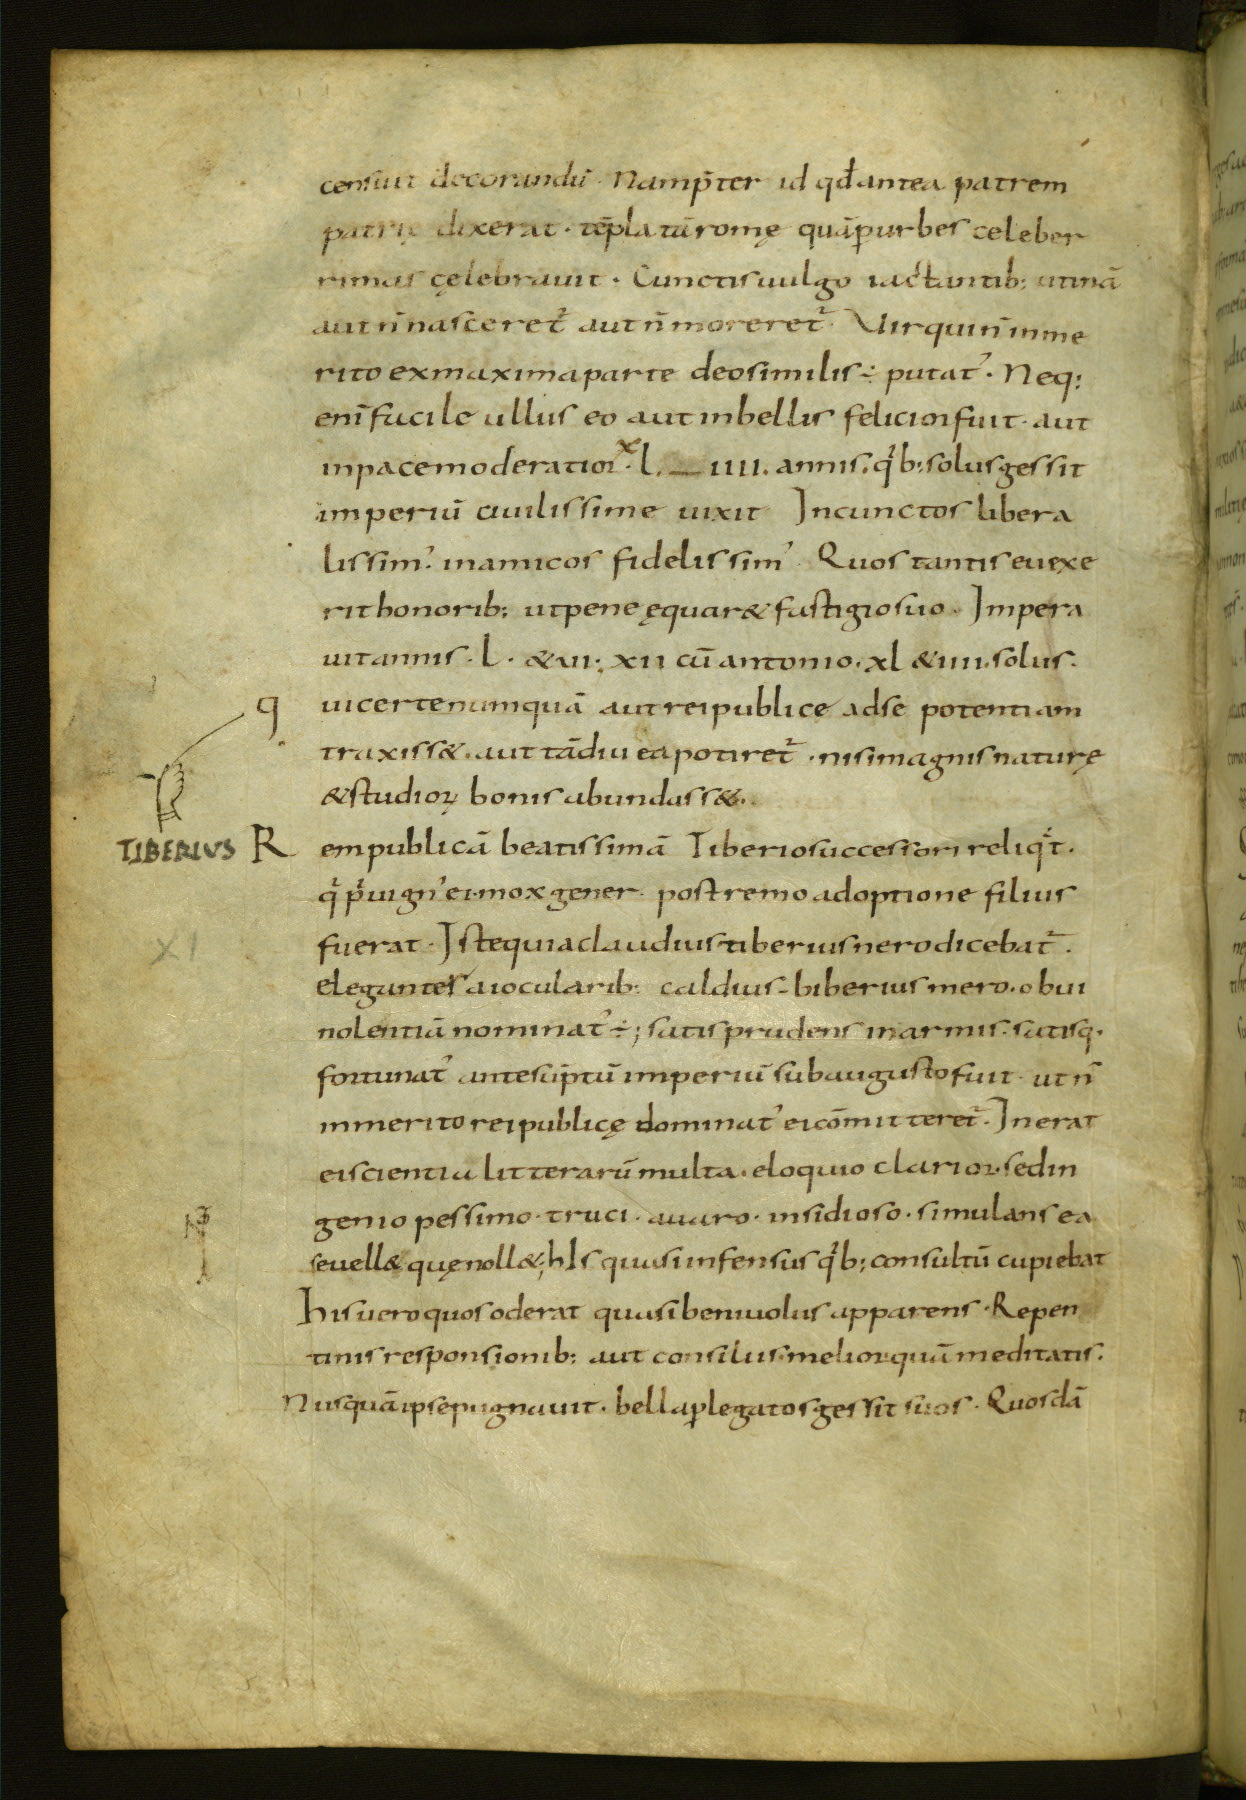 censuit decorandū. Namp̄ter id qđ antea patrem
patrię dixerat. tēpla tū romę quāp̲ urbes celeber
rimas cęlebrauit. Cunctis uulgo iactantib; utinā
aut n̄ nasceret᷑ aut n̄ moreret᷑. Vir qui n̄ inme
rito ex maxima parte deo similis ÷ putat'. Neq;
enī facile ullus eo aut in bellis felicior fuit. aut
in pace moderatior. x l. __ IIII. annis. qⁱb; solus gessit
imperiū ciuilissime uixit In cunctos libera
lissim'. in amicos fidelissim' Quos tantis euexe
rit honorib; ut pene ęquar& fastigio suo. Impera
uit annis. L. & VI: XII cū antonio. xl & IIII. solus.
q ui certe numquā aut reipublicę ad se potentiam
traxiss&. aut tādiu ea potiret᷑. nisi magnis naturę
& studioꝝ bonis abundass&.
TIBERIUS R em publicā beatissimā Tiberio successori reliqⁱt.
qⁱ pⁱuign' ei. mox gener. postremo adoptione filius
fuerat. Iste quia claudius tiberius nero dicebat᷑.
XI
elegantes a iocularib; caldius. biberius mero. ob ui
nolentiā nominat' ÷; satis prudens in armis. satisq.
fortunat' ante sūptū imperiū sub augusto fuit. ut n̄
inmerito reipublicę dominat' ei cōmitteret᷑. Inerat
ei scientia litterarū multa. eloquio clarior. sed in
genio pessimo. truci. auaro. insidioso. simulans ea
se uell& quę noll&; his quasi infensus qⁱb; consultū cupiebat
his uero quos oderat quasi beniuolus apparens. Repen
tinis responsionib; aut consiliis melior quā meditatis.
Nusquā ipse pugnauit. bella p̲ legatos gessit suos. Quosdā